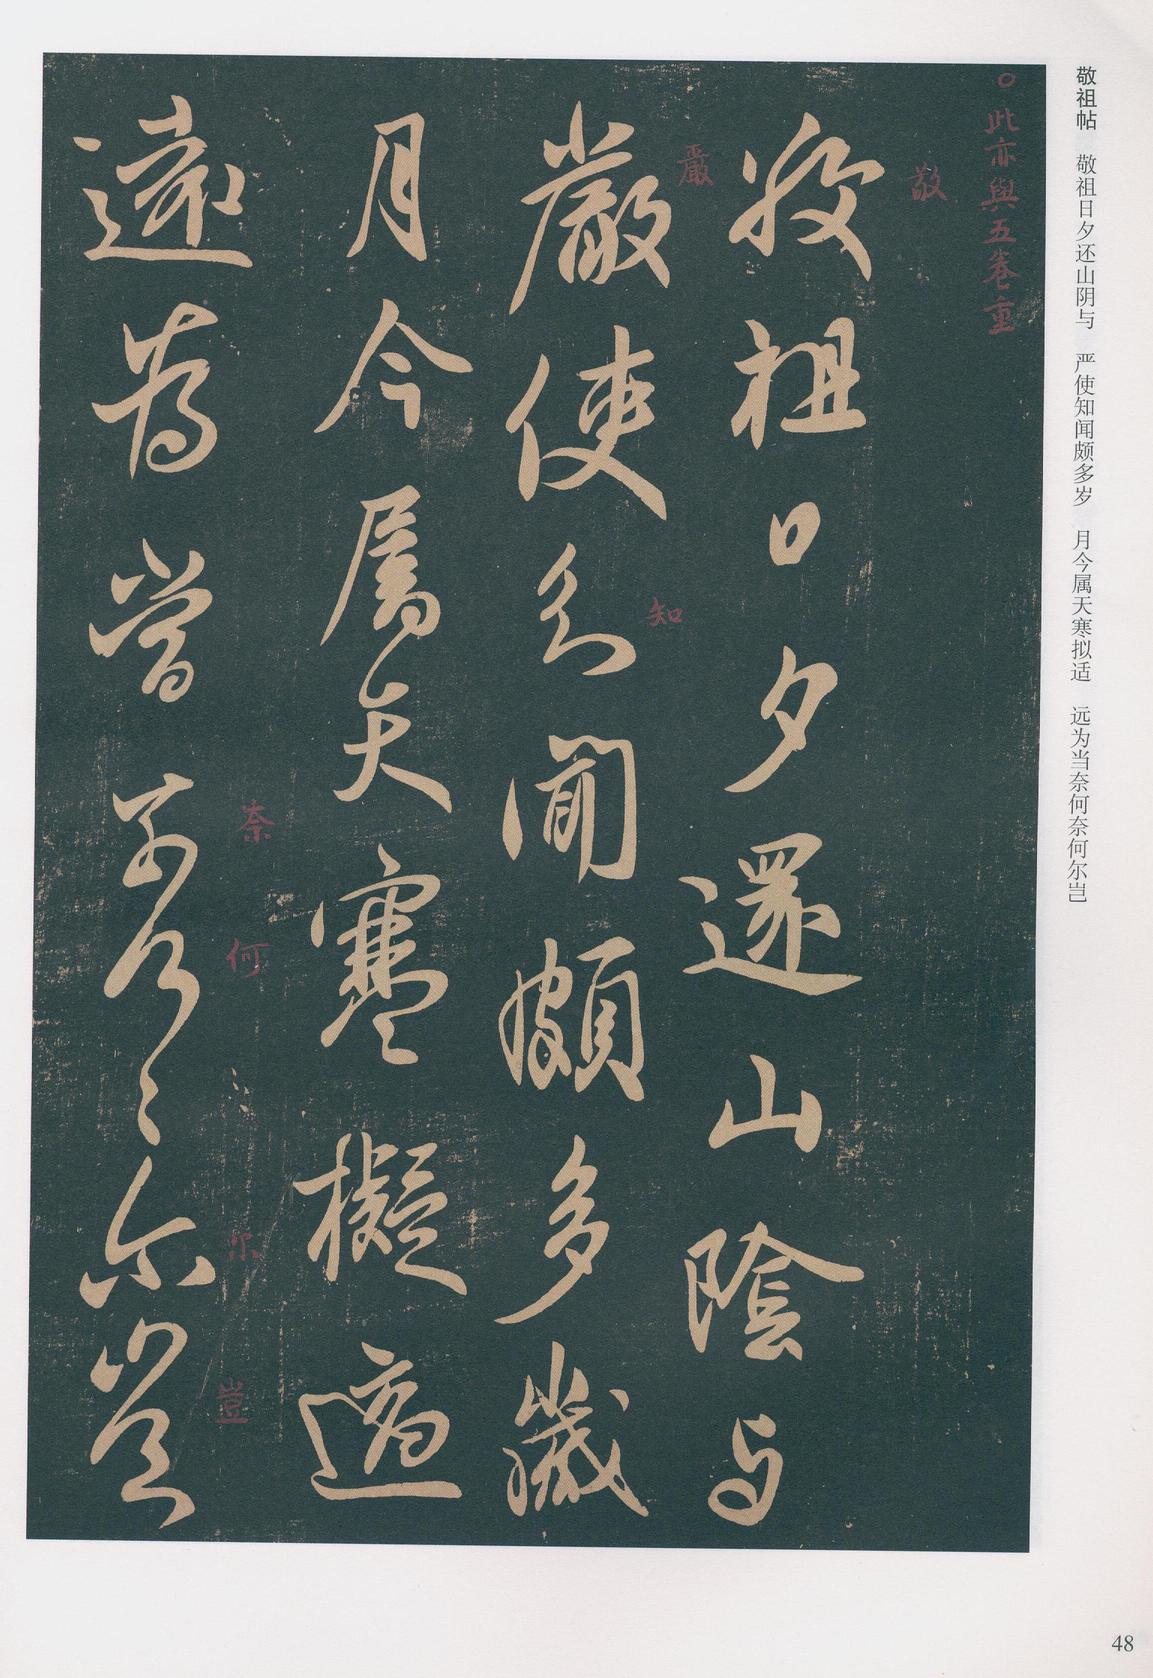 敬祖帖　敬祖日夕还山阴与　严使知闻颇多岁　月今属天寒拟适　远为当奈何奈何尔岂
○此亦與五卷重
敬祖日夕還山陰与
敬
嚴使知聞頗多歲
嚴
知
月今屬天寒擬適
遠為當奈何〻〻尔豈
奈
何
〻
尔
豈
48